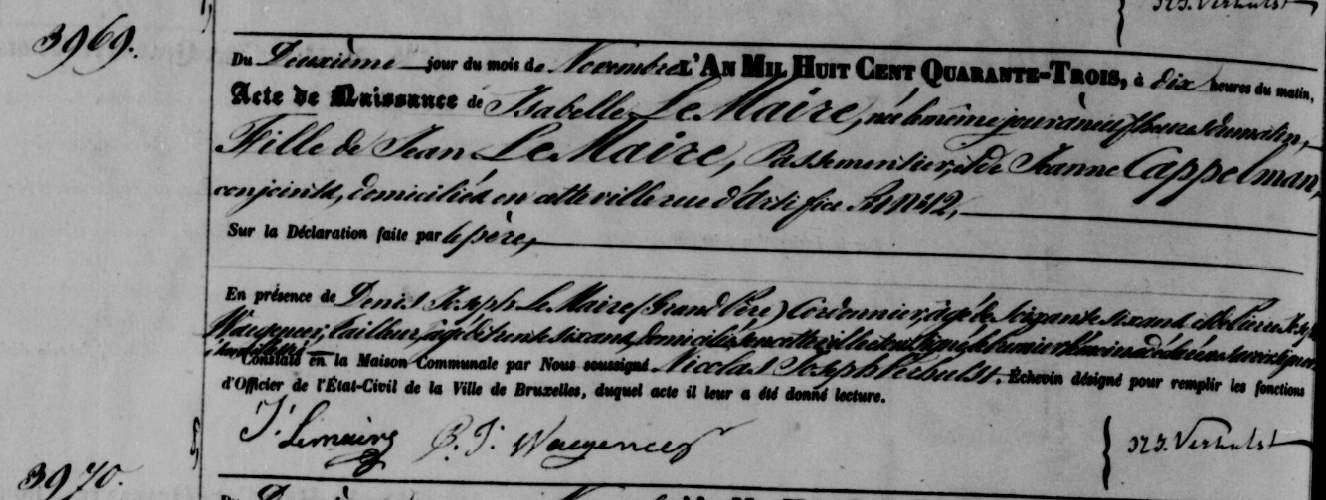 N.J. Verhulst
3969.
Du Deuxième jour du mois de Novembre L'AN MIL HUIT CENT QUARANTE-TROIS, à dix heures du matin,
Acte de Naissance de Isabelle Le Maire, née le même jour à neuf heures du matin,
Fille de Jean Le Maire, Passementier, et de Jeanne Cappelman,
conjoints, domiciliés en cette ville rue d'Artifice
Sur la Déclaration faite par le père,
En présence de Denis Joseph Le Maire (Grand Père) Cordonnier, âgé de soixante six ans et de Pierre
Waegeneer, tailleur, âgé de trente six ans, domiciliés en cette ville le premier témoin a déclaré ne savoir signer
Constaté en la Maison Communale par Nous soussigné Nicolas Joseph Verhulst. Échevin désigné pour remplir les fonctions
d'Officier de l'État-Civil de la Ville de Bruxelles, duquel acte il leur a été donné lecture.
J. Lemaire P. J. Waegeneer N.J. Verhulst
3970.